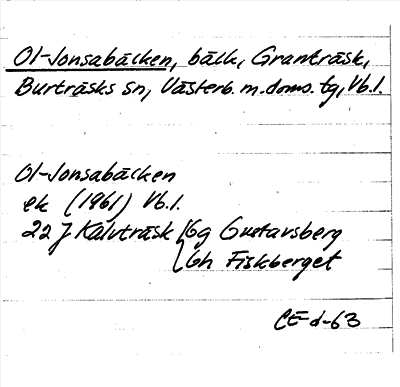 Ol-Jonsabäcken, bäck, Granträsk,
Burträsks sn, Västerb. m. doms. tg, Vb. l.
Ol-Jonsabäcken
ek (1961) Vb. l.
22 J Kalvträsk 6g Gustavsberg
6h Fiskberget
CE-d-63